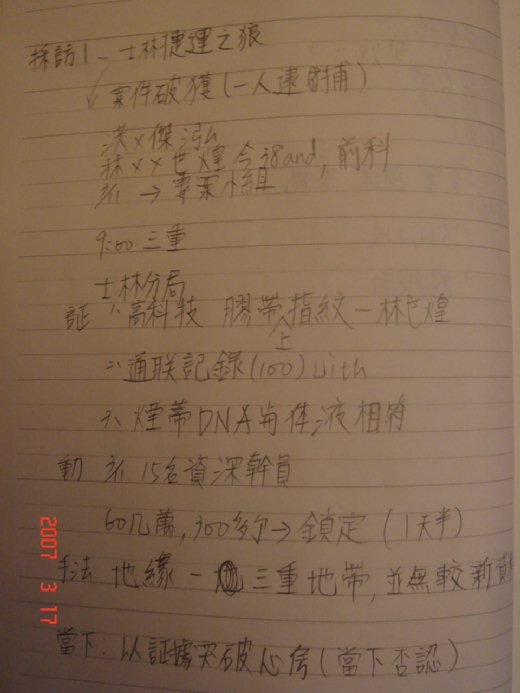 採訪1- 士林捷運之狼
案件破獲(一人逮捕)
洪x傑
林xx世煌 今 and, 前科
→ 專案小組
9:00 三重
士林分局
証 1、高科技 膠帶上指紋-林世煌
2、通联記録(100) with
3、煙蒂DNA与体液相符
動 15名資深幹員
60几萬, 300多 → 鎖定 (1天半)
手法 地緣 - 三重地帶, 並無較新
當下: 以証據突破心房(當下否認)
2007 3 17